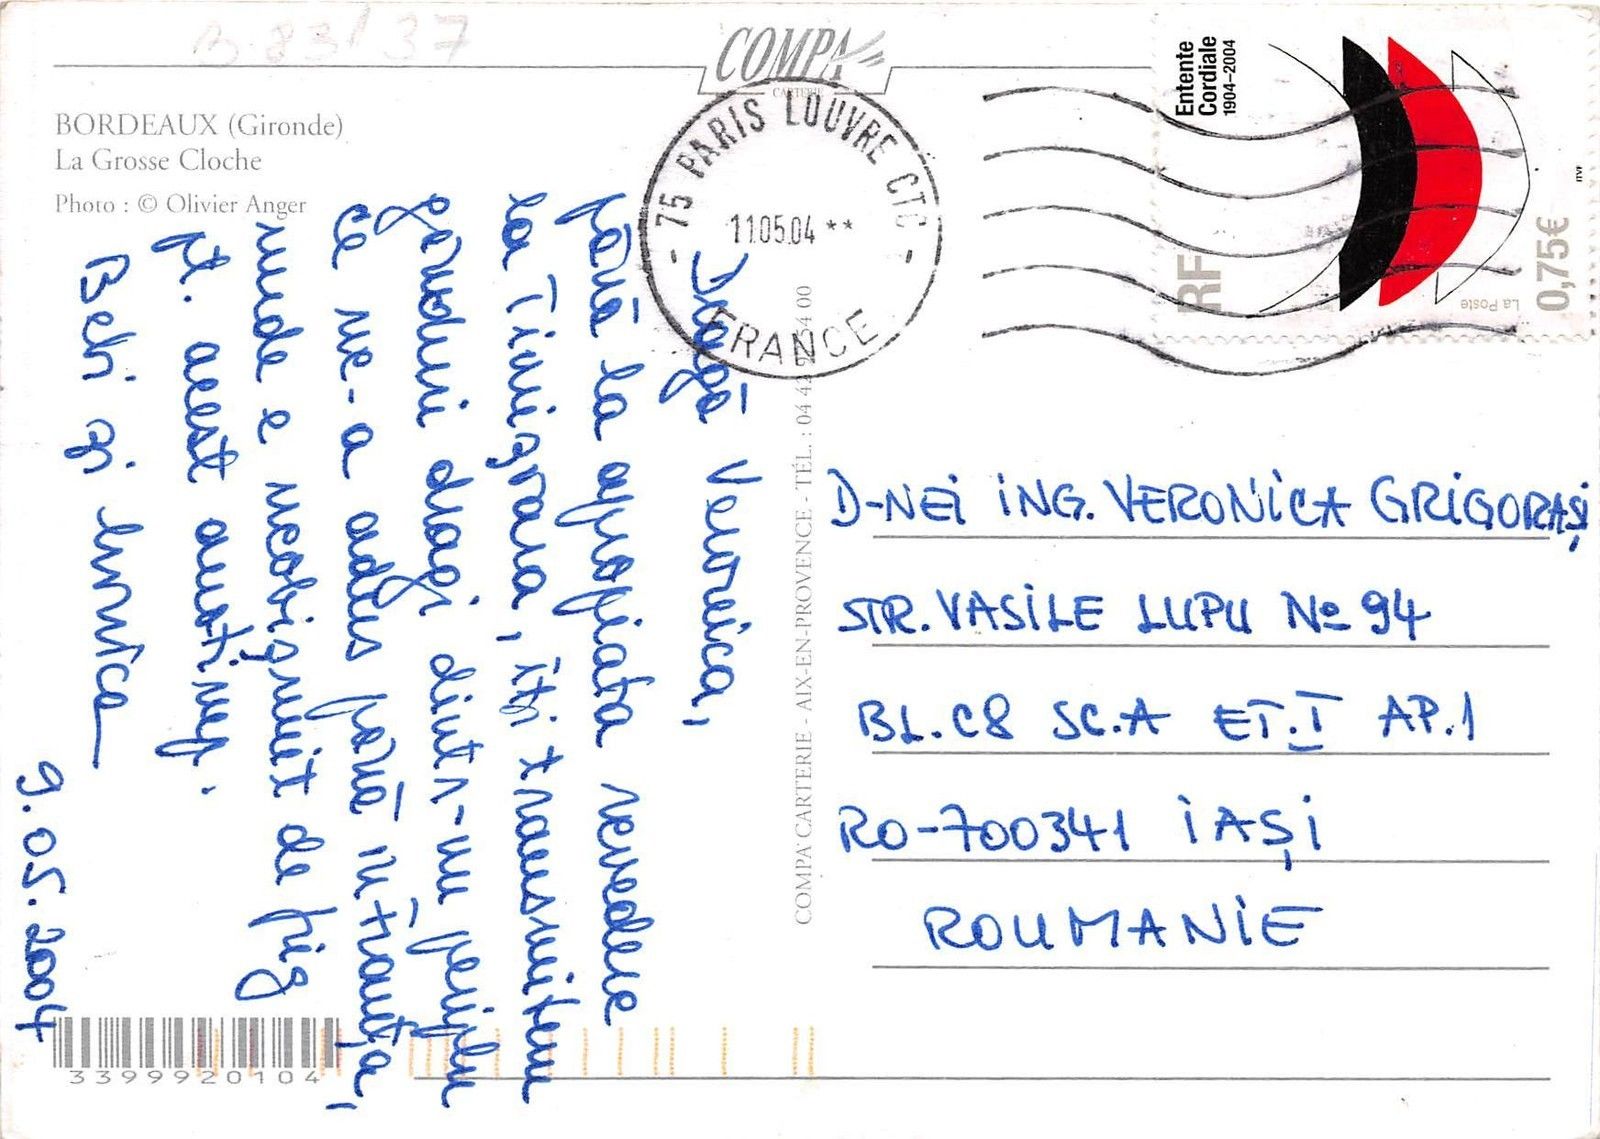 B 83/37
COMPA
CARTERIE
BORDEAUX (Gironde)
La Grosse Cloche
Photo : © Olivier Anger
- 75 PARIS LOUVRE CTC -
11.05.04 **
FRANCE
Entente
Cordiale
1904-2004
RF
La Poste
0,75€
ITVF
Dragă Veronica,
până la apropiata revedere
la Timișoara, îți transmitem
gânduri dragi dintr-un periplu
ce ne-a adus până în Franța,
unde e neobișnuit de frig
pt. acest anotimp.
Beti și
9.05.2004
COMPA CARTERIE - AIX-EN-PROVENCE - TÉL. : 04 42 54 00
D-NEI ING. VERONICA GRIGORAȘ
STR. VASILE LUPU No 94
BL. C8 SC. A ET. I AP. 1
RO-700341 IAȘI
ROUMANIE
3399920104